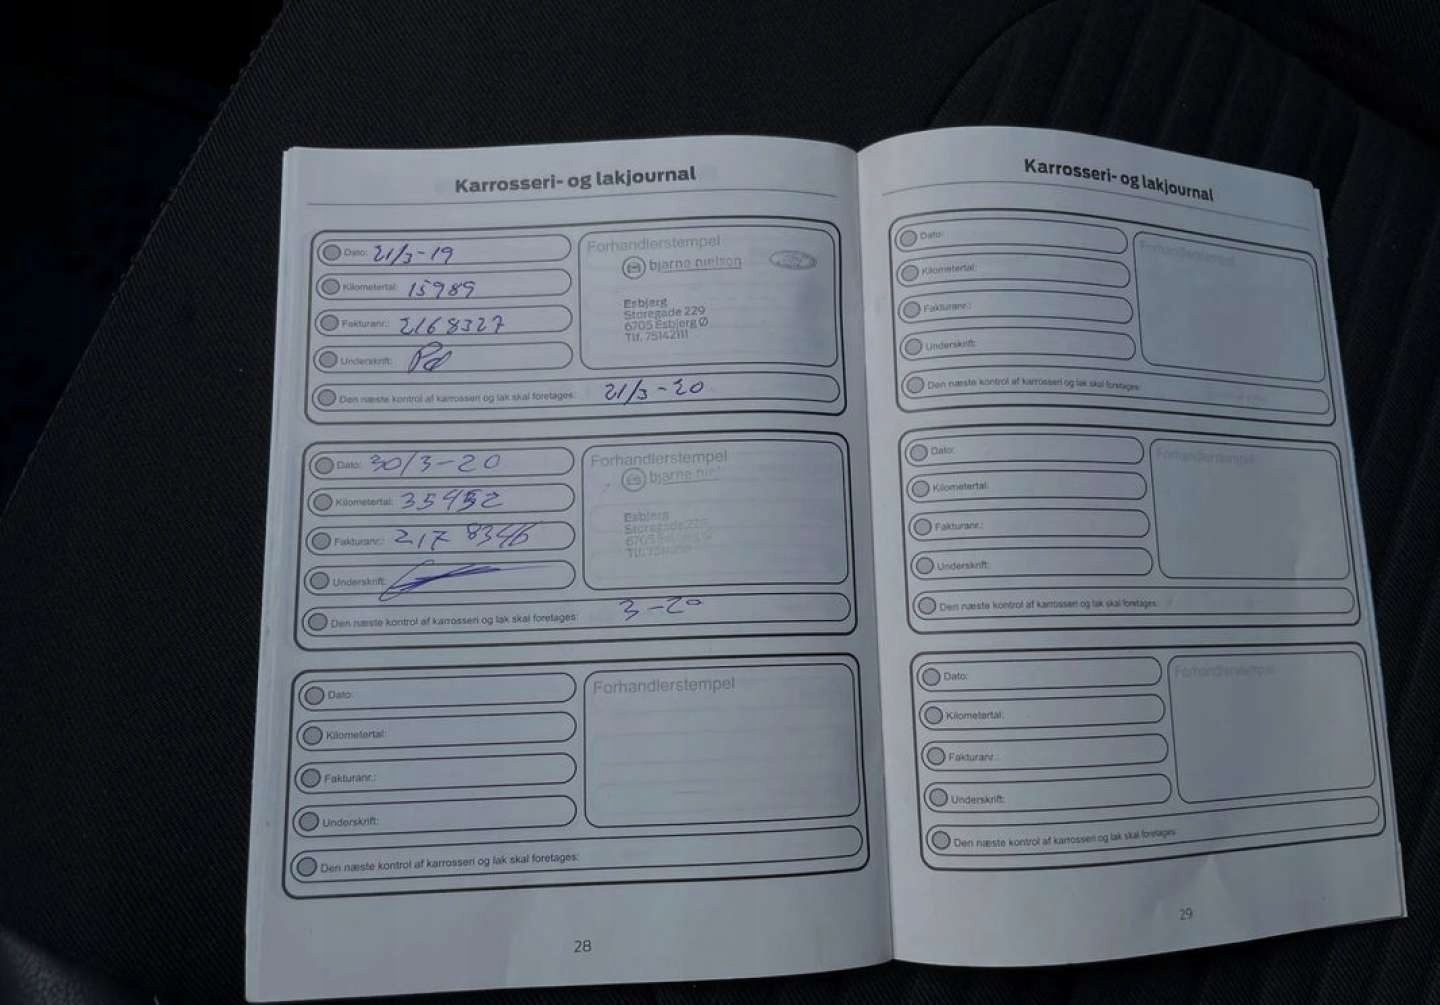 Karrosseri- og lakjournal
Dato: 21/3-19
Kilometertal: 15989
Fakturanr.: 2168327
Underskrift:
Forhandlerstempel
bjarne nielsen
Esbjerg
Storegade 229
6705 Esbjerg Ø
Tlf. 75142111
Den næste kontrol af karrosseri og lak skal foretages: 21/3-20
Dato: 30/3-20
Kilometertal: 35452
Fakturanr.: 2178346
Underskrift:
Forhandlerstempel
bjarne
Esbjerg
Storegade 229
6705
Den næste kontrol af karrosseri og lak skal foretages: 3-20
Dato:
Kilometertal:
Fakturanr.:
Underskrift:
Forhandlerstempel
Den næste kontrol af karrosseri og lak skal foretages:
28
Karrosseri- og lakjournal
Dato:
Kilometertal:
Fakturanr.:
Underskrift:
Forhandlerstempel
Den næste kontrol af karrosseri og lak skal foretages:
Dato:
Kilometertal:
Fakturanr.:
Underskrift:
Forhandlerstempel
Den næste kontrol af karrosseri og lak skal foretages:
Dato:
Kilometertal:
Fakturanr.:
Underskrift:
Forhandlerstempel
Den næste kontrol af karrosseri og lak skal foretages:
29